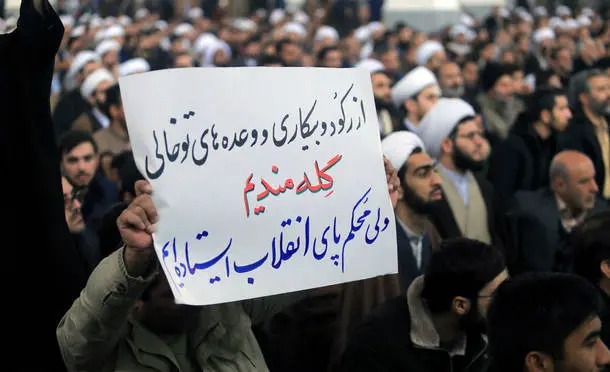 از رکُود و بیکاری و وعده های توخالی
گِله مندیم
ولی مُحکم پای انقلاب ایستاده ایم